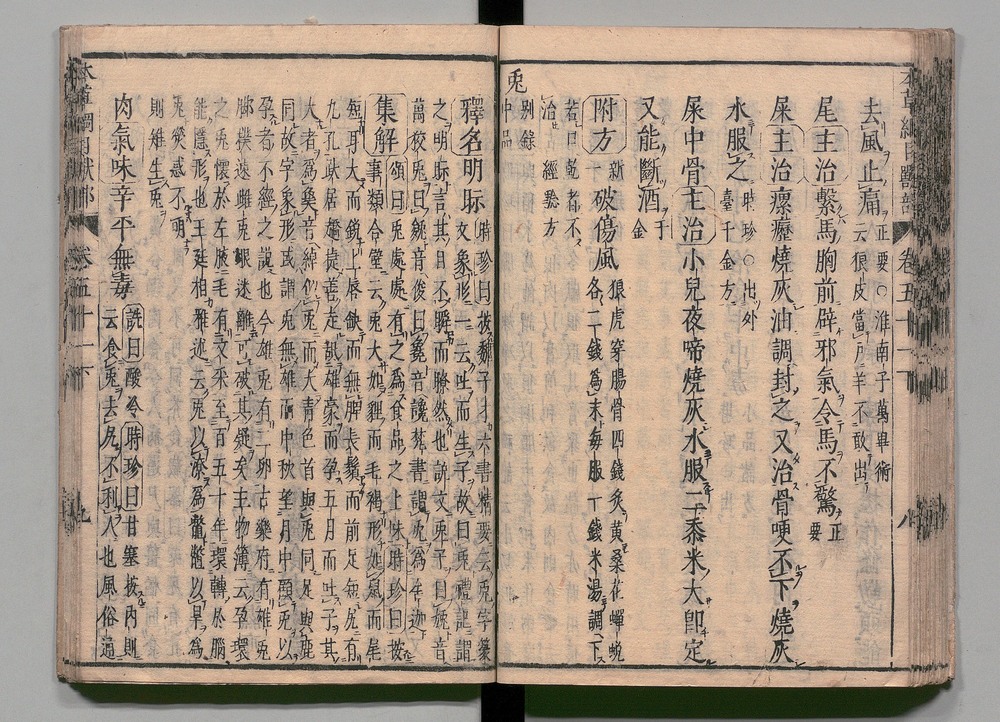 去風止痛 正要○淮南子萬畢術
云狼皮當戶羊不敢出
尾主治繫馬胸前辟邪氣令馬不驚 正要
屎主治瘰癧燒灰油調封之又治骨哽不下燒灰
水服之 時珍○出外
臺千金方
屎中骨主治小兒夜啼燒灰水服二黍米大即定
又能斷酒 千金
附方 新一 破傷風 狼虎穿腸骨四錢炙黃桑花蟬蛻
各二錢為末每服一錢米湯調下
若口乾者不
治 經驗方
兎 別錄
中品
釋名明眎 時珍曰按魏子才六書精要云兎字篆
文象形一云吐而生子故曰兎禮記謂
之明眎言其目不瞬而瞭然也說文兎子曰娩音
萬狡兎曰㕙音俊曰毚音讒梵書謂兎為舍迦
集解 頌曰兎處處有之為食品之上味時珍曰按
事類合璧云兎大如貍而毛褐形如鼠而尾
短耳大而銳上唇缺而無脾長鬚而前足短尻有
九孔趺居趫捷善走舐雄豪而孕五月而吐子其
大者為㚟音綽似兎而大青色首與兎同足與鹿
同故字象形或謂兎無雄而中秋望月中顧兎以
孕者不經之說也今雄兎有二卵古樂府有雄兎
脚撲速雌兎眼迷離可破其疑矣主物簿云孕環
之兎懷於左腋毛有文采至百五十年環轉於腦
能隱形也王廷相雅述云兎以潦為鱉鱉以旱為
兎熒惑不明
則雉生兎
肉氣味辛平無毒 詵曰酸冷時珍曰甘寒按內則
云食兎去尻不利人也風俗通
本草綱目獸部
卷五十一下
九
本草綱目獸部
卷五十一下
八